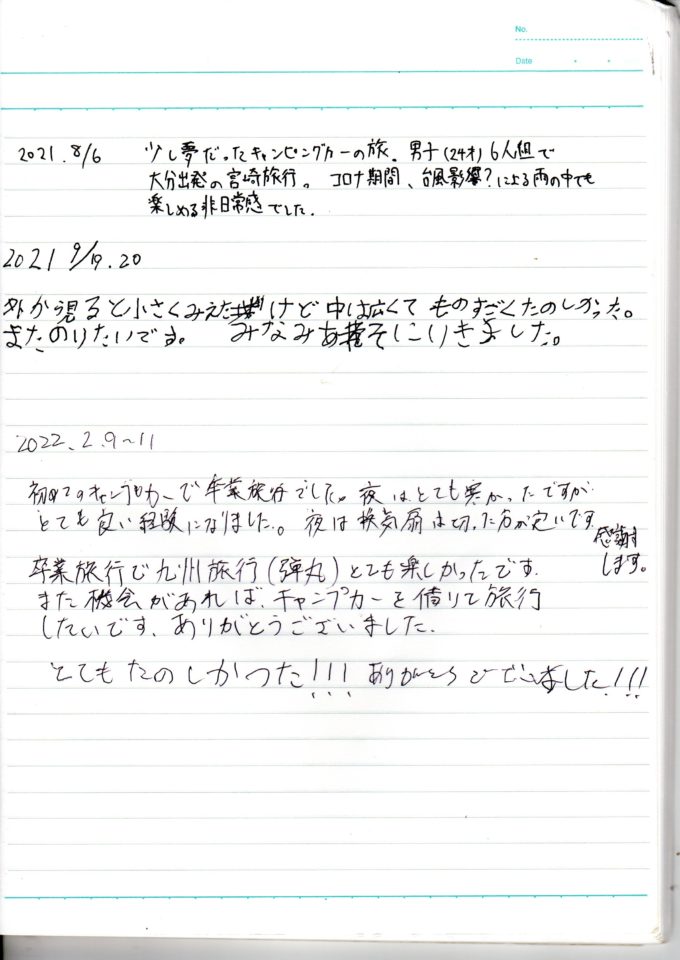 No.
Date
2021.8/6 少し夢だったキャンピングカーの旅。男子(24才)6人組で
大分出発の宮崎旅行。コロナ期間、台風影響?による雨の中でも
楽しめる非日常感でした.
2021 9/19.20
外から見ると小さくみえたけど中は広くてものすごくたのしかった。
またのりたいです。 みなみあそにいきました。
2022.2.9~11
初めてのキャンプカーで卒業旅行でした。夜はとても寒かったですが
とても良い経験になりました。夜は換気扇は切った方が良いです
感謝
します。
卒業旅行で九州旅行(弾丸)とても楽しかったです.
また機会があれば、キャンプカーを借りて旅行
したいです、ありがとうございました.
とてもたのしかった!!! ありがとうございました!!!